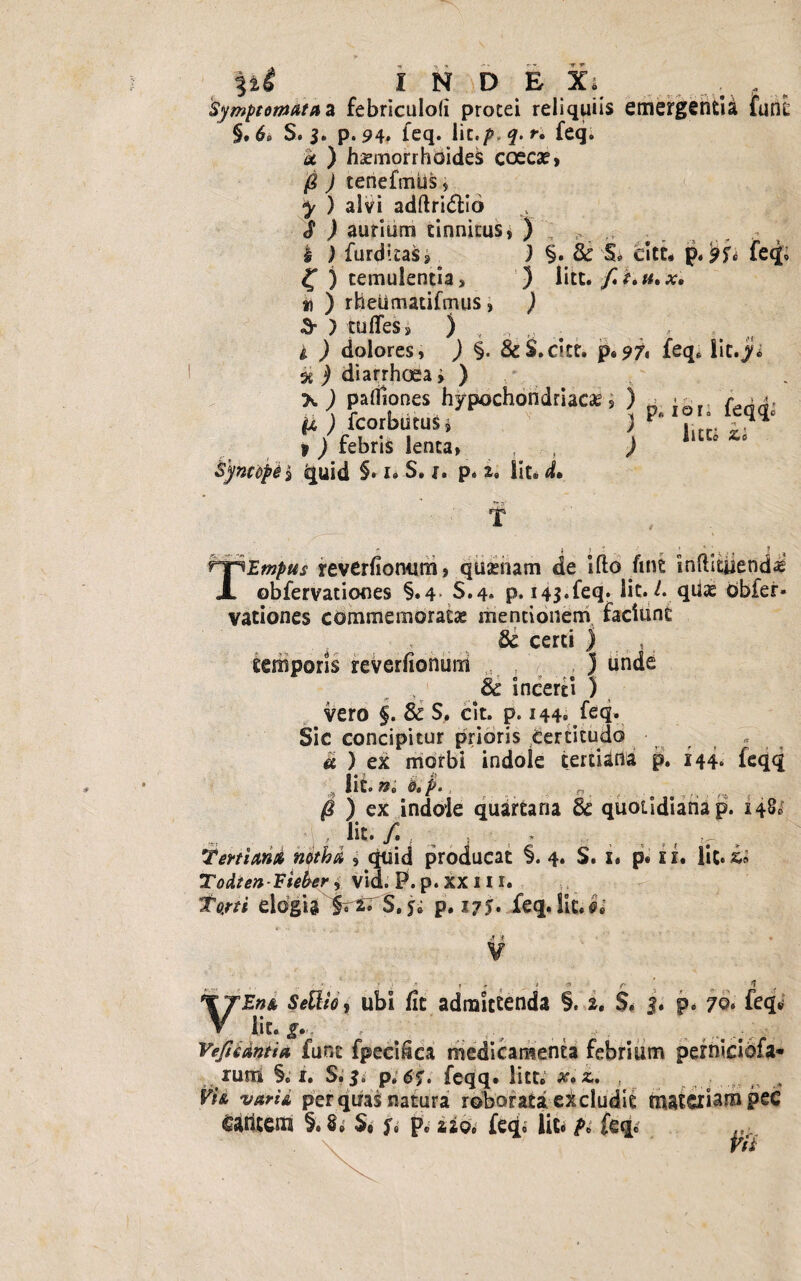 326 INDEX.
Symptomata a febriculosi protei reliquiis emergentia sunt
§. 6. S. 3. p. 94. seq. lit. p. q. r. seq.
α ) hæmorrhoides cœcæ,
β ) tenesmus,
γ ) alvi adstrictio
δ ) aurium tinnitus, )
ε ) surditas, ) §. & S. citt. p. 95. seq.
ζ ) temulentia, ) litt. s. t. u. x.
η ) rheumatismus, )
ϑ ) tusses, )
ι ) dolores, ) §. & S. citt. p. 97. seq. lit. y.
ϰ ) diarrhœa, )
λ ) passiones hypochondriacæ, ) p. 101. seqq.
μ ) scorbutus, ) litt. z.
ν ) febris lenta, )
Syncope, quid §. 1. S. 1. p. 2. lit. d.
T
TEmpus reversionum, quænam de isto sint instituendæ
observationes §. 4. S. 4. p. 143. seq. lit. l. quæ obser-
vationes commemoratæ mentionem faciunt
& certi )
temporis reversionum ) unde
& incerti )
vero §. & S. cit. p. 144. seq.
Sic concipitur prioris certitudo
α ) ex morbi indole tertiana p. 144. seqq
lit. n. o. p.
β ) ex indole quartana & quotidiana p. 148.
lit. s.
Tertiana notha, quid producat §. 4. S. 1. p. 11. lit. z.
Todten-Fieber, vid. P. p. XXIII.
Torti elogia §. 2. S. 5. p. 175. seq. lit. o.
V
VEnæ Sectio, ubi sit admittenda §. 2. S. 3. p. 70. seq.
lit. g.
Vesicantia sunt specifica medicamenta febrium perniciosa-
rum §. 1. S. 3. p. 65. seqq. litt. x. z.
Viæ variæ per quas natura roborata excludit materiam pec
cantem §. 8. S. 5. p. 220. seq. lit. p. seq.
Vis